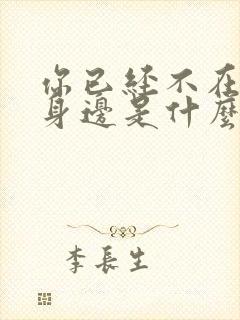 你已經不在
身邊是什麼
李長生